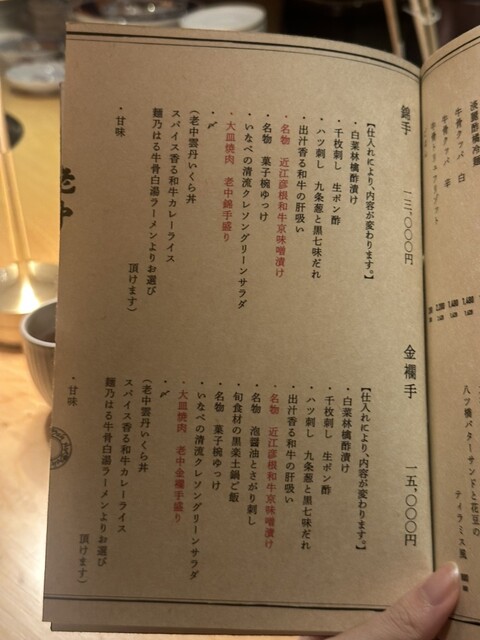 淡麗酢橘冷麺
牛骨クッパ 白
牛骨クッパ 辛
八ツ橋バターサンドと花豆の
ティラミス風
錦手
一三、〇〇〇円
【仕入れにより、内容が変わります。】
・白菜林檎酢漬け
・千枚刺し 生ポン酢
・ハツ刺し 九条葱と黒七味だれ
・出汁香る和牛の肝吸い
・名物 近江彦根和牛京味噌漬け
・名物 菓子椀ゆっけ
・いなべの清流クレソングリーンサラダ
・大皿焼肉 老中錦手盛り
・〆
(老中雲丹いくら丼
スパイス香る和牛カレーライス
麺乃はる牛骨白湯ラーメンよりお選び
頂けます)
・甘味
金襴手
一五、〇〇〇円
【仕入れにより、内容が変わります。】
・白菜林檎酢漬け
・千枚刺し 生ポン酢
・ハツ刺し 九条葱と黒七味だれ
・出汁香る和牛の肝吸い
・名物 近江彦根和牛京味噌漬け
・名物 泡醤油とさがり刺し
・旬食材の黒楽土鍋ご飯
・名物 菓子椀ゆっけ
・いなべの清流クレソングリーンサラダ
・大皿焼肉 老中金襴手盛り
・〆
(老中雲丹いくら丼
スパイス香る和牛カレーライス
麺乃はる牛骨白湯ラーメンよりお選び
頂けます)
・甘味
老中